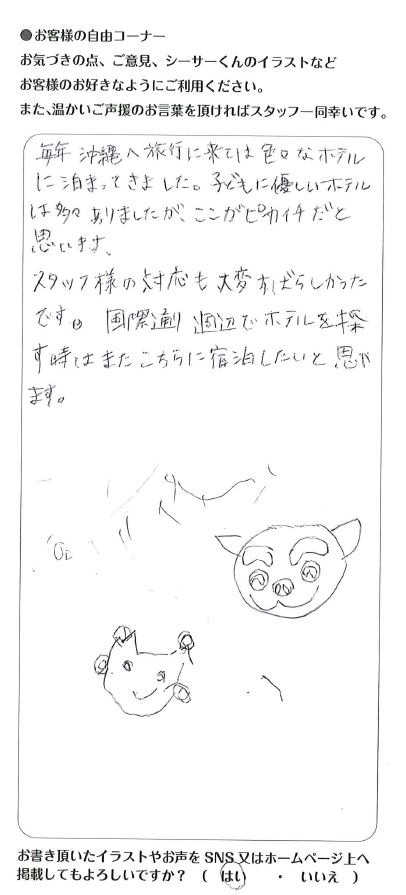 ●お客様の自由コーナー
お気づきの点、ご意見、シーサーくんのイラストなど
お客様のお好きなようにご利用ください。
また、温かいご声援のお言葉を頂ければスタッフ一同幸いです。
毎年 沖縄へ旅行に来ては色々なホテル
に泊まってきました。子どもに優しいホテル
は多々ありましたが、ここがピカイチだと
思います。
スタッフ様の対応も大変すばらしかった
です。国際通り周辺でホテルを探
す時はまたこちらに宿泊したいと思い
ます。
お書き頂いたイラストやお声をSNS又はホームページ上へ
掲載してもよろしいですか？（ はい ・ いいえ ）